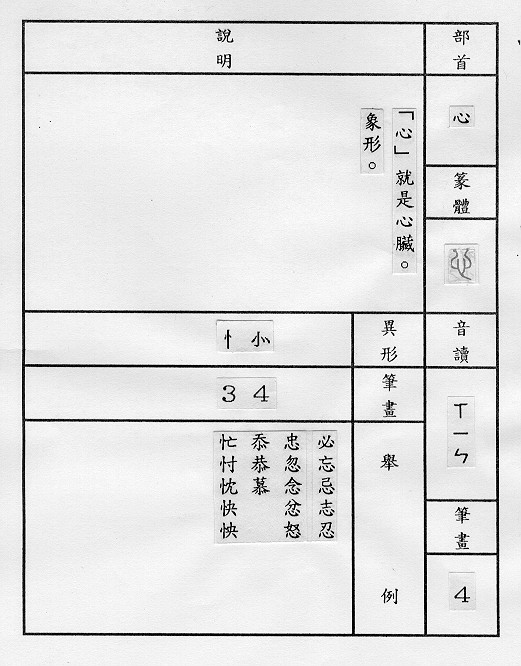 部首
心
篆體
音讀
ㄒㄧㄣ
筆畫
4
說明
「心」就是心臟。
象形。
異形
⺗
忄
筆畫
4
3
舉例
必忘忌志忍
忠忽念忿怒
忝恭慕
忙忖忱快怏